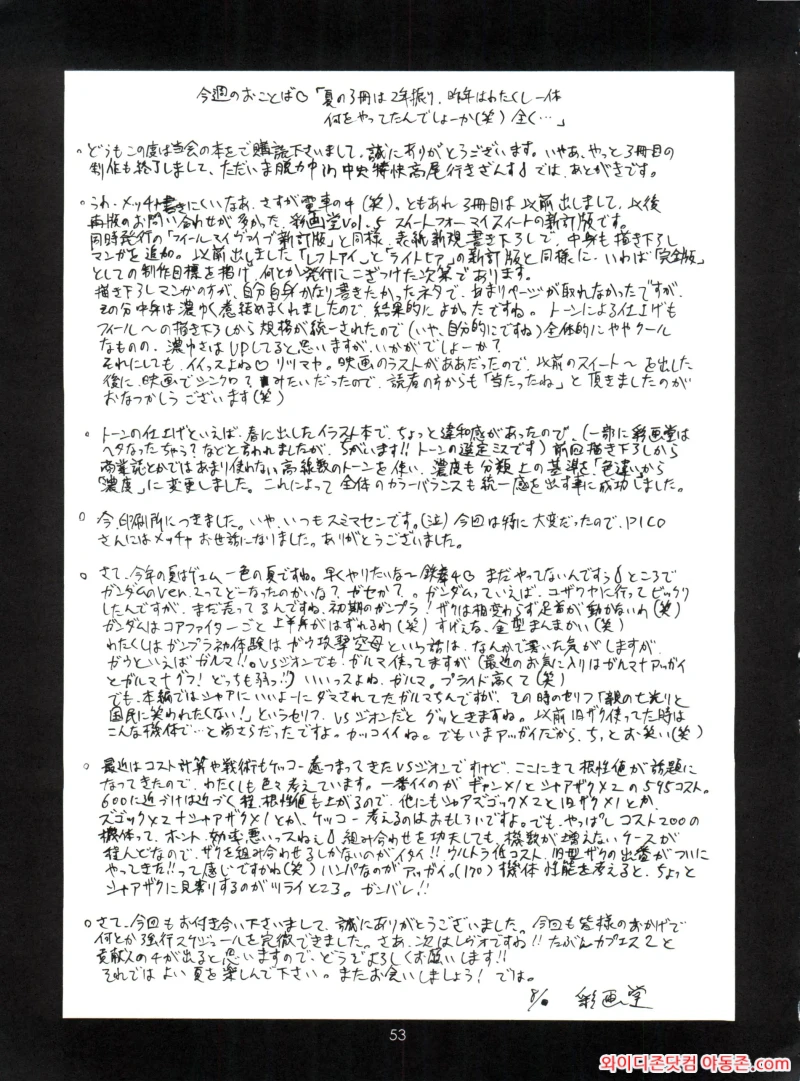 今週のおことば♡「夏の3冊は2年振り、昨年はわたくし一体
何をやってたんでしょーか(笑)全く…」
。どうもこの度は当会の本をご購読下さいまして、誠にありがとうございます。いやあ、やっと3冊目の
制作も終了しまして、ただいま脱力中in中央特快高尾行きざんす。では、あとがきです。
。うわ、メッチャ書きにくいなあ、さすが電車の中(笑)。ともあれ3冊目は以前出しまして、以後
再版のお問い合わせが多かった、彩画堂Vol.5 スイートフォーマイスイートの新訂版です。
同時発行の「フィールマイヴァイブ新訂版」と同様、表紙新規書き下ろしで、中身も描き下ろし
マンガを追加。以前出しました「レフトアイ」と「ライトヒア」の新訂版と同様に、いわば「完全版」
としての制作目標を掲げ、何とか発行にこぎつけた次第であります。
描き下ろしマンガの方が、自分自身かなり書きたかったネタで、あまりページが取れなかったですが、
その分中身は濃ゆく煮詰めまくれましたので、結果的によかったですね。トーンによる仕上げも
フィール〜の描き下ろしから規格が統一されたので(いや、自分的にですね)全体的にややクール
なものの、濃ゆさはUPしてると思いますが、いかがでしょーか?
それにしても、イイっスよね♡リツマヤ。映画のラストがああだったので、以前のスイート〜を出した
後に、映画でシンクロ?みたいだったので、読者の方からも「当たったね」と頂きましたのが
おなつかしうございます(笑)
。トーンの仕上げといえば、春に出したイラスト本で、ちょっと違和感があったので、(一部に彩画堂は
ヘタなったちゃう?などと言われましたが、ちがいます!!トーンの選定ミスです)前回描き下ろしから
商業誌とかではあまり使わない高線数のトーンを使い、濃度も分類上の基準を「色違い」から
「濃度」に変更しました。これによって全体のカラーバランスも統一感を出す事に成功しました。
。今、印刷所につきました。いや、いつもスミマセンです。(泣)今回は特に大変だったので、PICO
さんにはメッチャお世話になりました。ありがとうございました。
。さて、今年の夏はゲェム一色の夏ですね。早くやりたいな〜鉄拳4♡まだやってないんですぅ。ところで
ガンダムのVer.2ってどーなったのかいな?ガセか?。ガンダムっていえば、コザワヤに行ってビックリ
したんですが、まだ売ってるんですね、初期のガンプラ!ザクは相変わらず足首が動かないわ(笑)
ガンダムはコアファイターごと上半身がはずれるわ(笑)すげえな、金型まんまかい(笑)
わたくしはガンプラ初体験はガウ攻撃空母という話は、なんかで書いた気がしますが、
ガウといえばガルマ!!。VSジオンでも、ガルマ使ってますが(最近のお気に入りはガルマ+アッガイ
とガルマ+グフ!どっちも弱っ!!)いいっスよね、ガルマ。プライド高くて(笑)
でも、本編ではシャアにいいよーにダマされてたガルマちんですが、その時のセリフ「親の七光りと
国民に笑われたくない!」というセリフ、VSジオンだとグッときますね。以前旧ザク使ってた時は
こんな機体で…とめさらだったですよ。カッコイイね。でもいまアッガイだから、ちっとお笑い(笑)
。最近はコスト計算や戦術もケッコー煮つまってきたVSジオンですけど、ここにきて根性値が話題に
なってきたので、わたくしも色々考えています。一番イイのがギャン×1とシャアザク×2の595コスト。
600に近づけば近づく程、根性値も上がるので、他にもシャアズゴック×2と旧ザク×1とか、
ズゴック×2+シャアザク×1とか、ケッコー考えるのはおもしろいですよ。でも、やっぱしコスト200の
機体って、ホント、効率悪いっスねぇ。組み合わせを功夫しても、機数が増えないケースが
殆んどなので、ザクを組み合わせるしかないのがイタイ!!ウルトラ低コスト、旧型ザクの出番がついに
やってきた!!って感じですかね(笑)ハンパなのがアッガイ。(170)機体性能を考えると、ちょっと
シャアザクに見劣りするのがツライところ。ガンバレ!!
。さて、今回もお付き合い下さいまして、誠にありがとうございました。今回も皆様のおかげで
何とか強行スケジュールを完徹できました。さあ、次はレヴォですね!!たぶんカプエス2と
美獣人の4が出ると思いますので、どうぞよろしくお願いします!!
それではよい夏を楽しんで下さい。またお会いしましょう!では。
8/。 彩画堂
53
와이디존닷컴 아동존.com